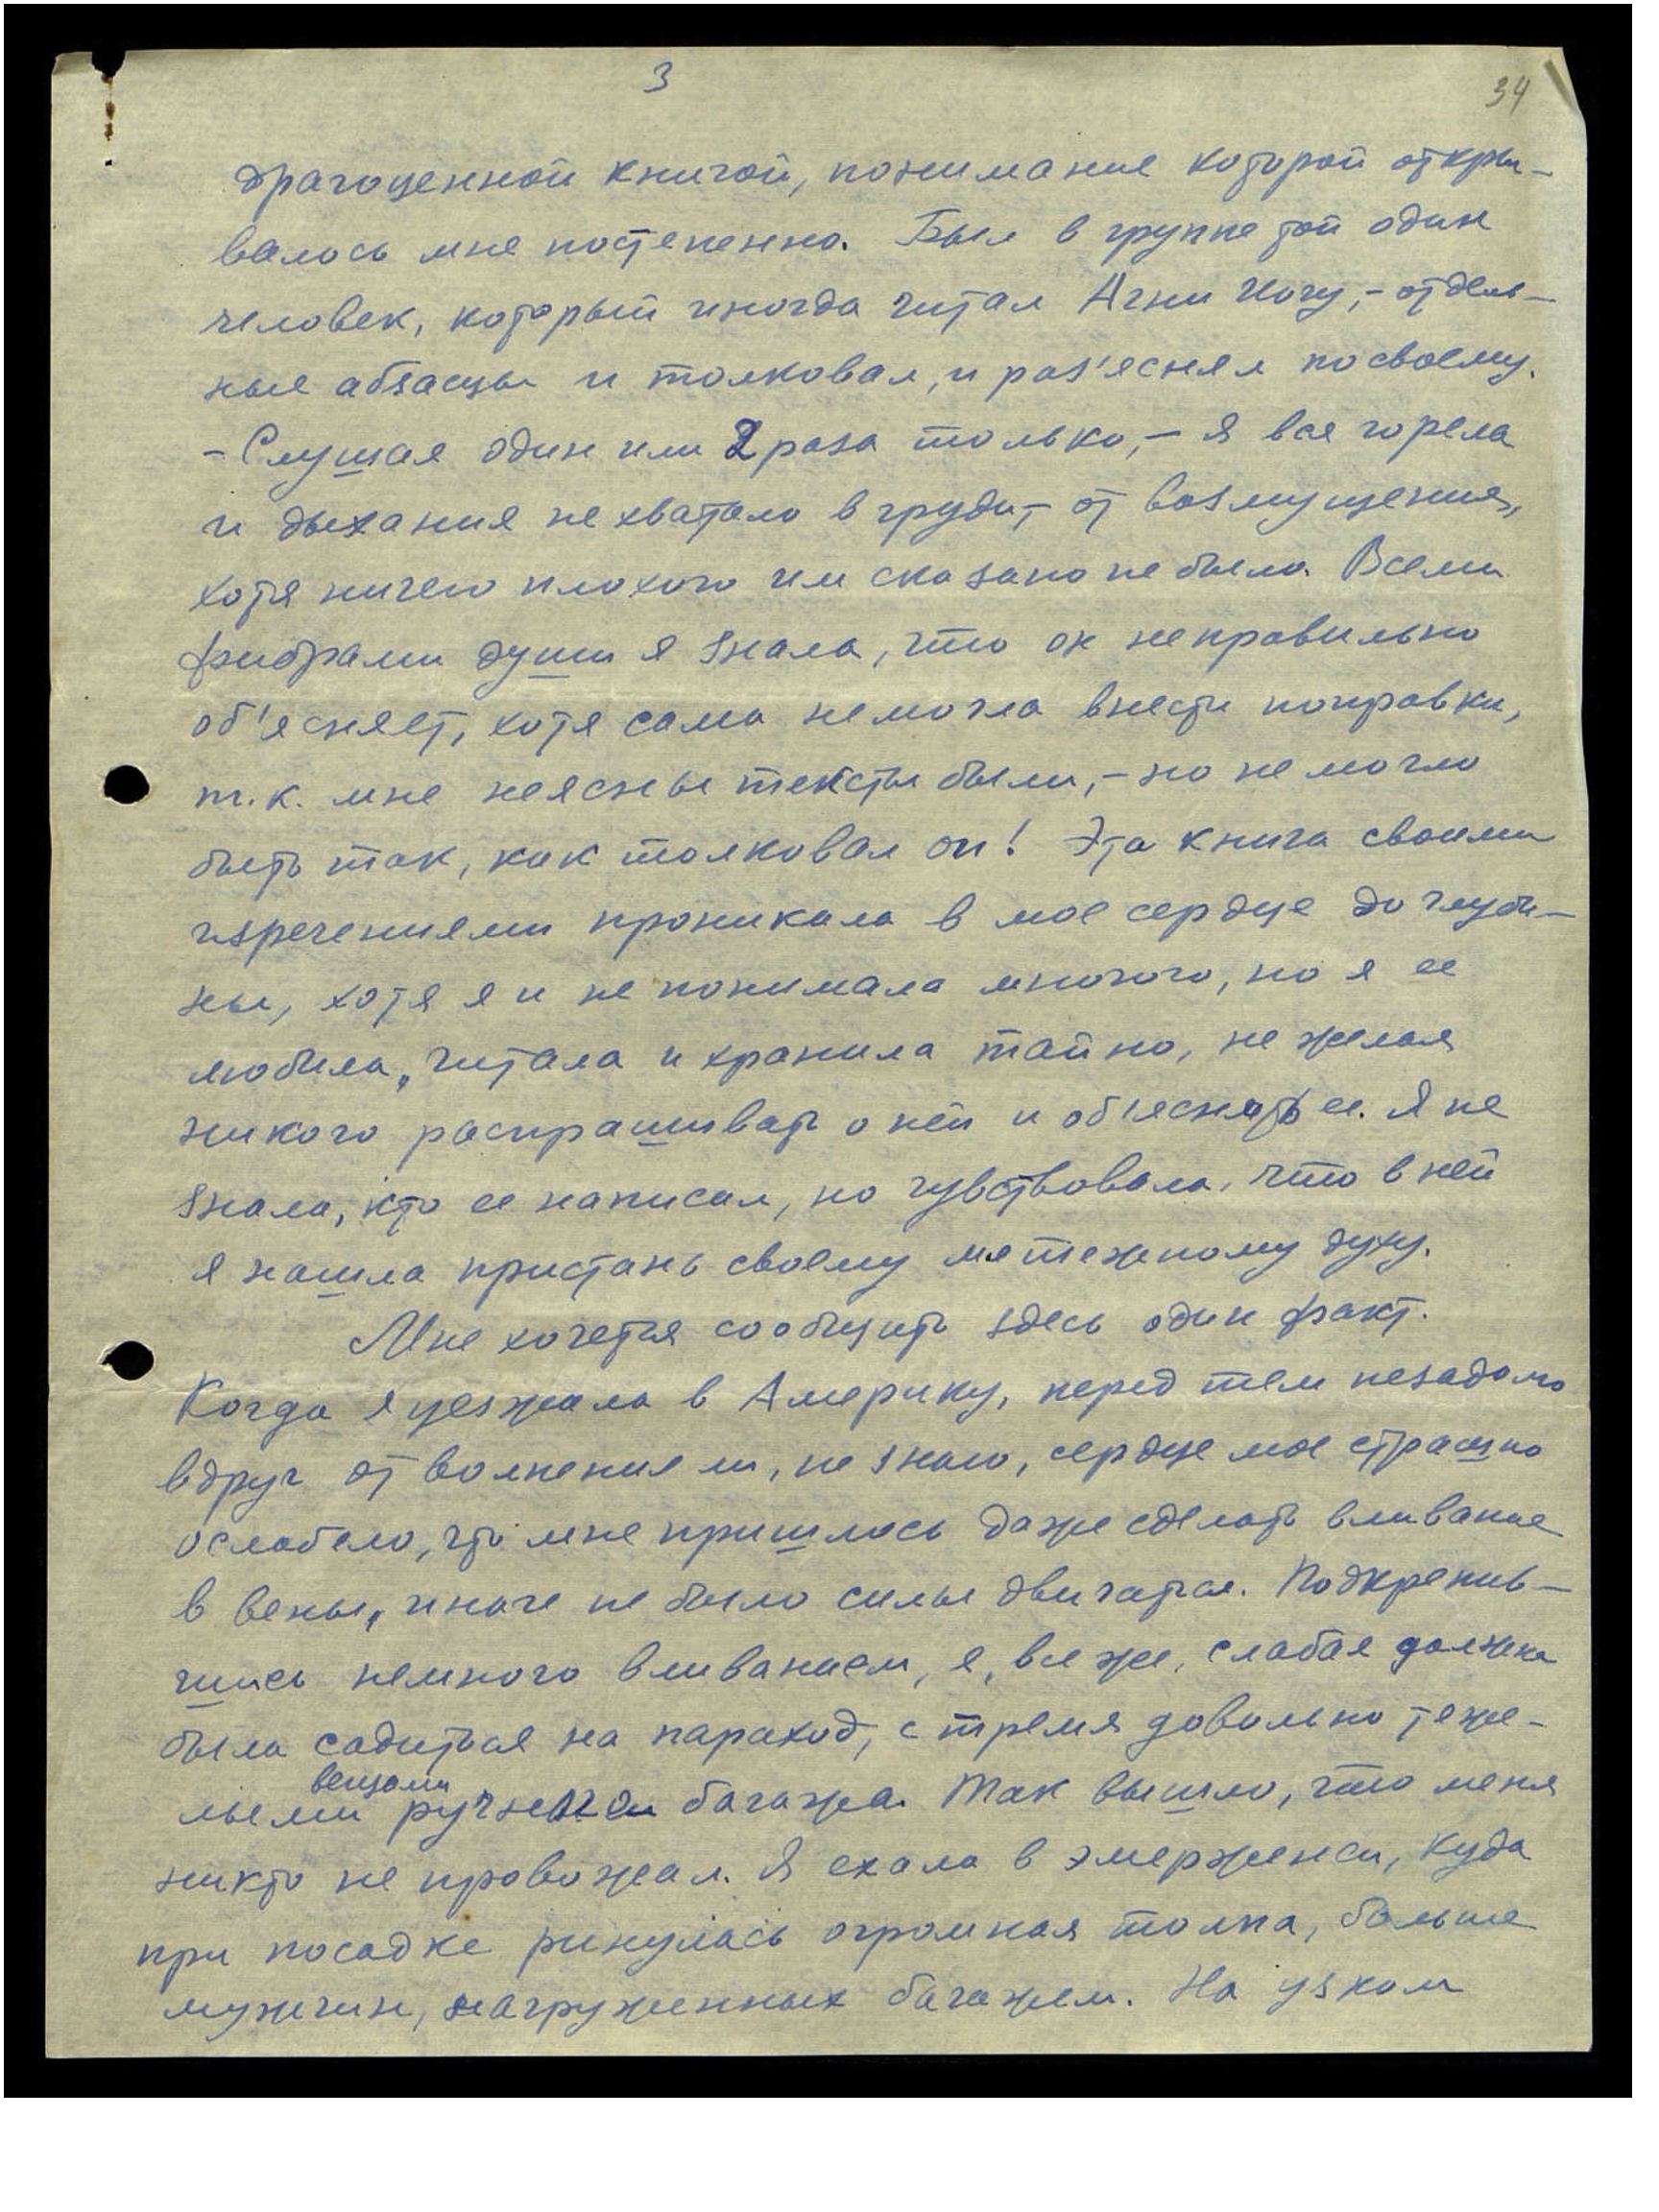 3
34
драгоценной книгой, понимание которой откры-
валось мне постепенно. Был в группе той один
человек, который иногда читал Агни Йогу, - отдель-
ные абзацы и толковал, и раз'яснял посвоему.
- Слушая один или 2 раза только, - я вся горела
и дыхания не хватало в груди, - от возмущения,
хотя ничего плохого им сказано не было. Всеми
фибрами души я знала, что он неправильно
об'ясняет, хотя сама не могла внести поправки,
т.к. мне неясны тексты были, - но не могло
быть так, как толковал он! Эта книга своими
изречениями проникала в мое сердце до глуби-
ны, хотя я и не понимала многого, но я ее
любила, читала и хранила тайно, не желая
никого распрашивать о ней и об'яснять ее. Я не
знала, кто ее написал, но чувствовала, что в ней
я нашла пристань своему мятежному духу.
Мне хочется сообщить здесь один факт.
Когда я уезжала в Америку, перед тем незадолго
вдруг от волнения ли, не знаю, сердце мое страшно
ослабело, что мне пришлось даже сделать вливание
в вены, иначе не было силы двигаться. Подкрепив-
шись немного вливанием, я, все же, слабая должна
была садиться на параход, с тремя довольно тяже-
вещами
лыми ручного багажа. Так вышло, что меня
никто не провожал. Я ехала в эмердженси, куда
при посадке ринулась огромная толпа, больше
мужчин, нагруженных багажем. На узком